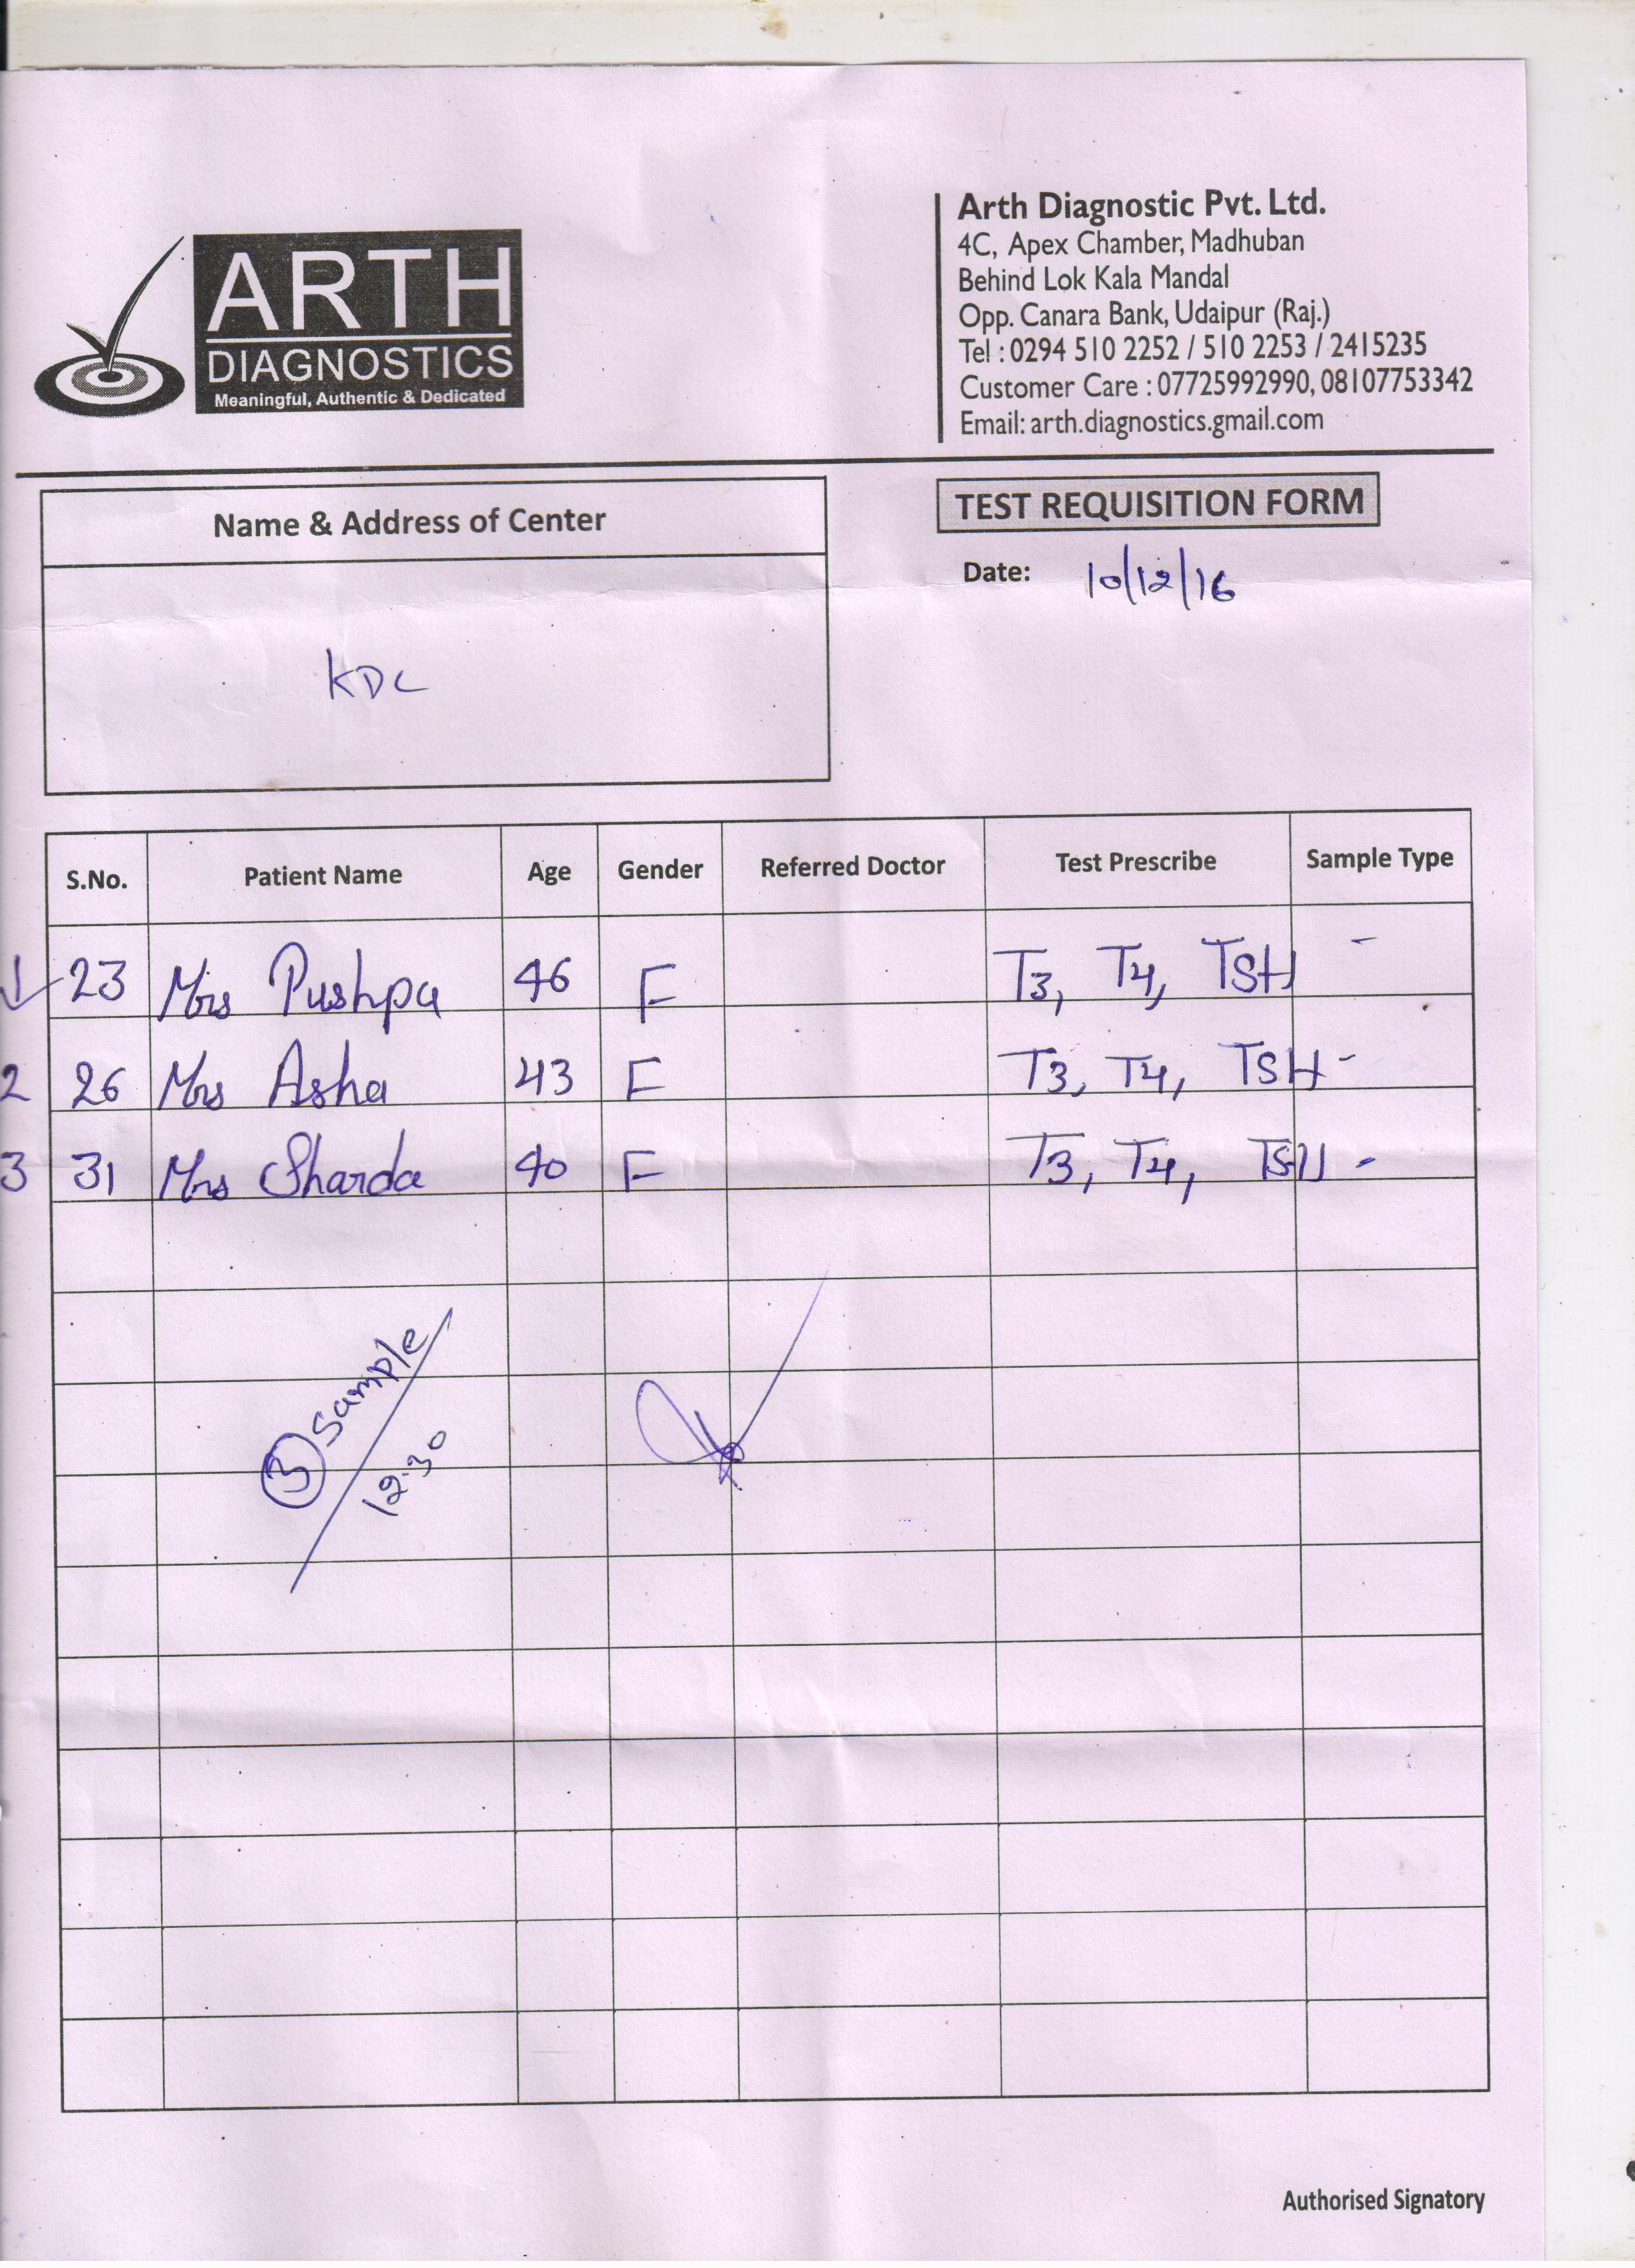 ARTH
DIAGNOSTICS
Meaningful, Authentic & Dedicated
Arth Diagnostic Pvt. Ltd.
4C, Apex Chamber, Madhuban
Behind Lok Kala Mandal
Opp. Canara Bank, Udaipur (Raj.)
Tel : 0294 510 2252 / 510 2253 / 2415235
Customer Care : 07725992990, 08107753342
Email: arth.diagnostics.gmail.com
Name & Address of Center
KDC
TEST REQUISITION FORM
Date: 10/12/16
S.No. Patient Name Age Gender Referred Doctor Test Prescribe Sample Type
1 23 Mrs Pushpa 46 F T3, T4, TSH -
2 26 Mrs Asha 43 F T3, T4, TSH -
3 31 Mrs Sharda 40 F T3, T4, TSH -
3 Sample
12.30
Authorised Signatory